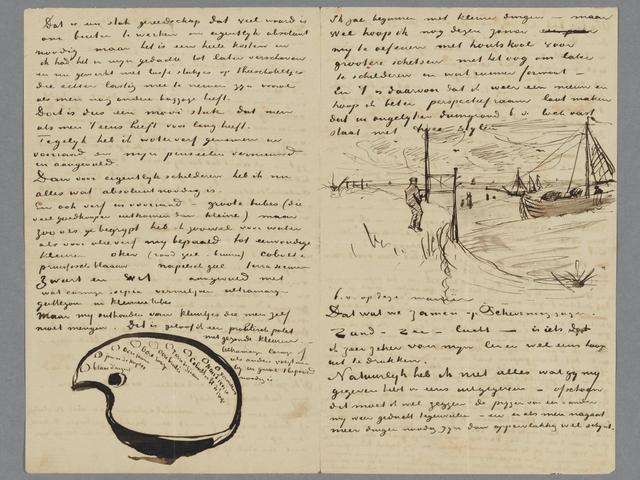 Dat is een stuk gereedschap dat veel waard is
om buiten te werken om eigentlijk absoluut
noodig maar het is een heele kosten en
ik had het in mijn gedachte tot later verschoven
en nu gewerkt met losse stukjes op theeschoteltjes
die echter lastig mee te nemen zijn vooral
als men nog andere baggage heeft.
Doch is dus een mooi stuk dat men
als men 't eens heeft voor lang heeft.
Tegelijk heb ik waterverf genomen in
voorraad en mijn penseelen vernieuwd
en aangevuld.
Dan voor eigentlijk schilderen heb ik nu
alles wat absoluut noodig is.
En ook verf in voorraad – groote tubes (die
veel goedkooper uitkomen dan kleine) maar
zooals ge begrijpt heb ik zoowel voor water
als voor olieverf mij bepaald tot eenvoudige
kleuren oker (rood geel - bruin) cobalt &
pruissischblaauw napelsch geel terra sienna
zwart en wit aangevuld met
wat carmijn sepia vermiljoen ultramarin
guttegom in kleinere tubes
Maar mij onthouden van kleurtjes die men zelf
moet mengen. Dit is geloof ik een praktisch palet
met gezonde kleuren.
ultramarin Carmijn of
als anders
noodig is
Ik zal beginnen met kleine dingen – maar
wel hoop ik nog dezen zomer
mij te oefenen met houtskool voor
grootere schetsen met het oog om later
te schilderen in wat ruimer formaat –
En 't is daarvoor dat ik weer een nieuw en
hoop ik beter perspectiefraam laat maken
dat in ongelijken duingrond b.v. toch vast
staat met twee stijlen
b.v. op deze manier
Dat wat we zamen op Schevening zagen.
Zand – Zee – Lucht – is iets dat
ik zeer zeker voor mijn leven wel eens hoop
uit te drukken.
Natuurlijk heb ik niet alles wat gij mij
gegeven hebt in eens uitgegeven – ofschoon
dit moet ik wel zeggen de prijzen van een &ander
mij weer geducht tegenvielen – en er als men nagaat
meer dingen noodig zijn dan oppervlakkig wel schijnt.